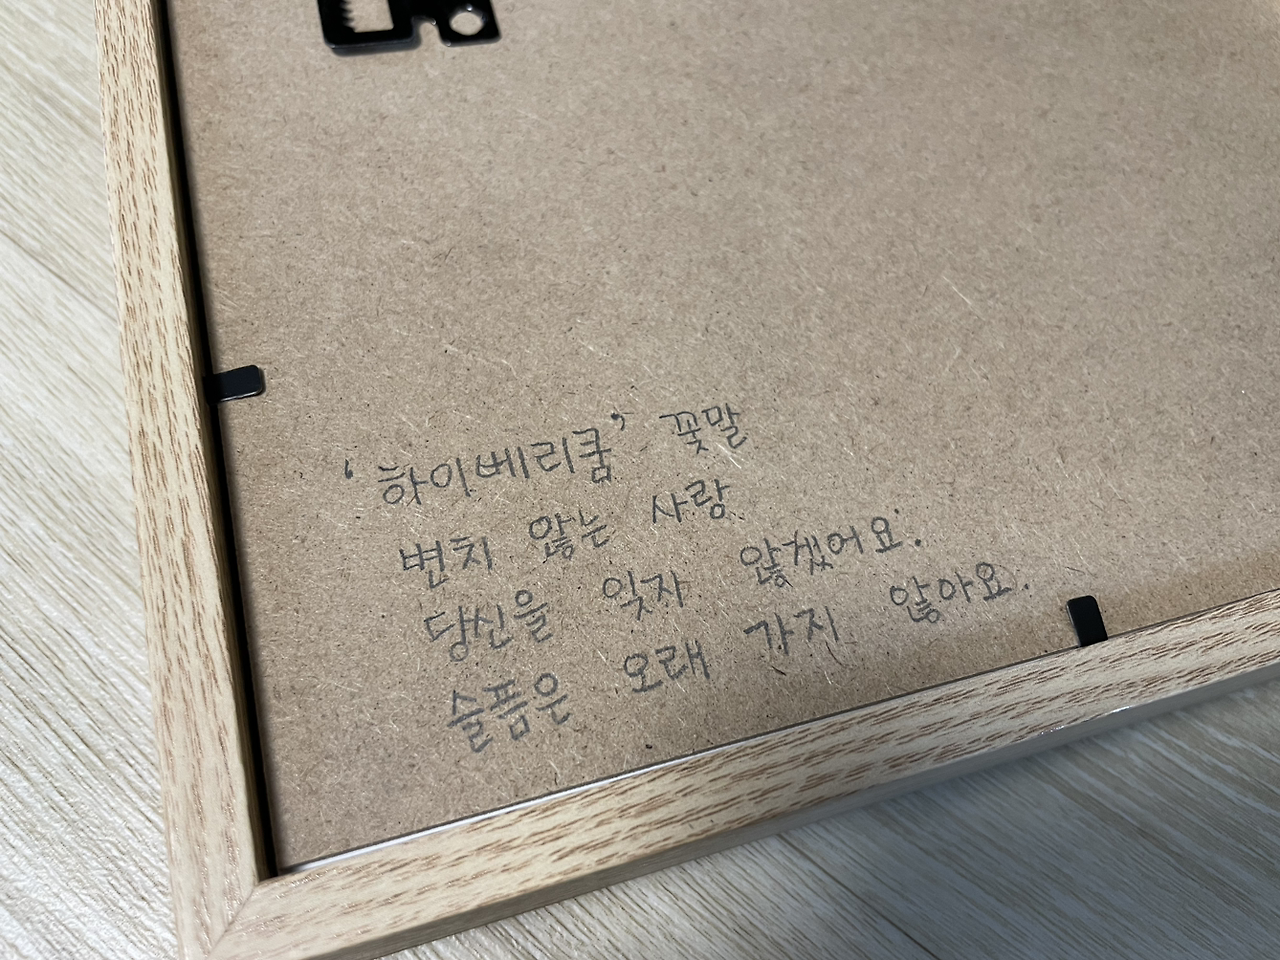 '하이베리쿰' 꽃말
변치 않는 사랑
당신을 잊자 않겠어요.
슬픔은 오래 가지 않아요.